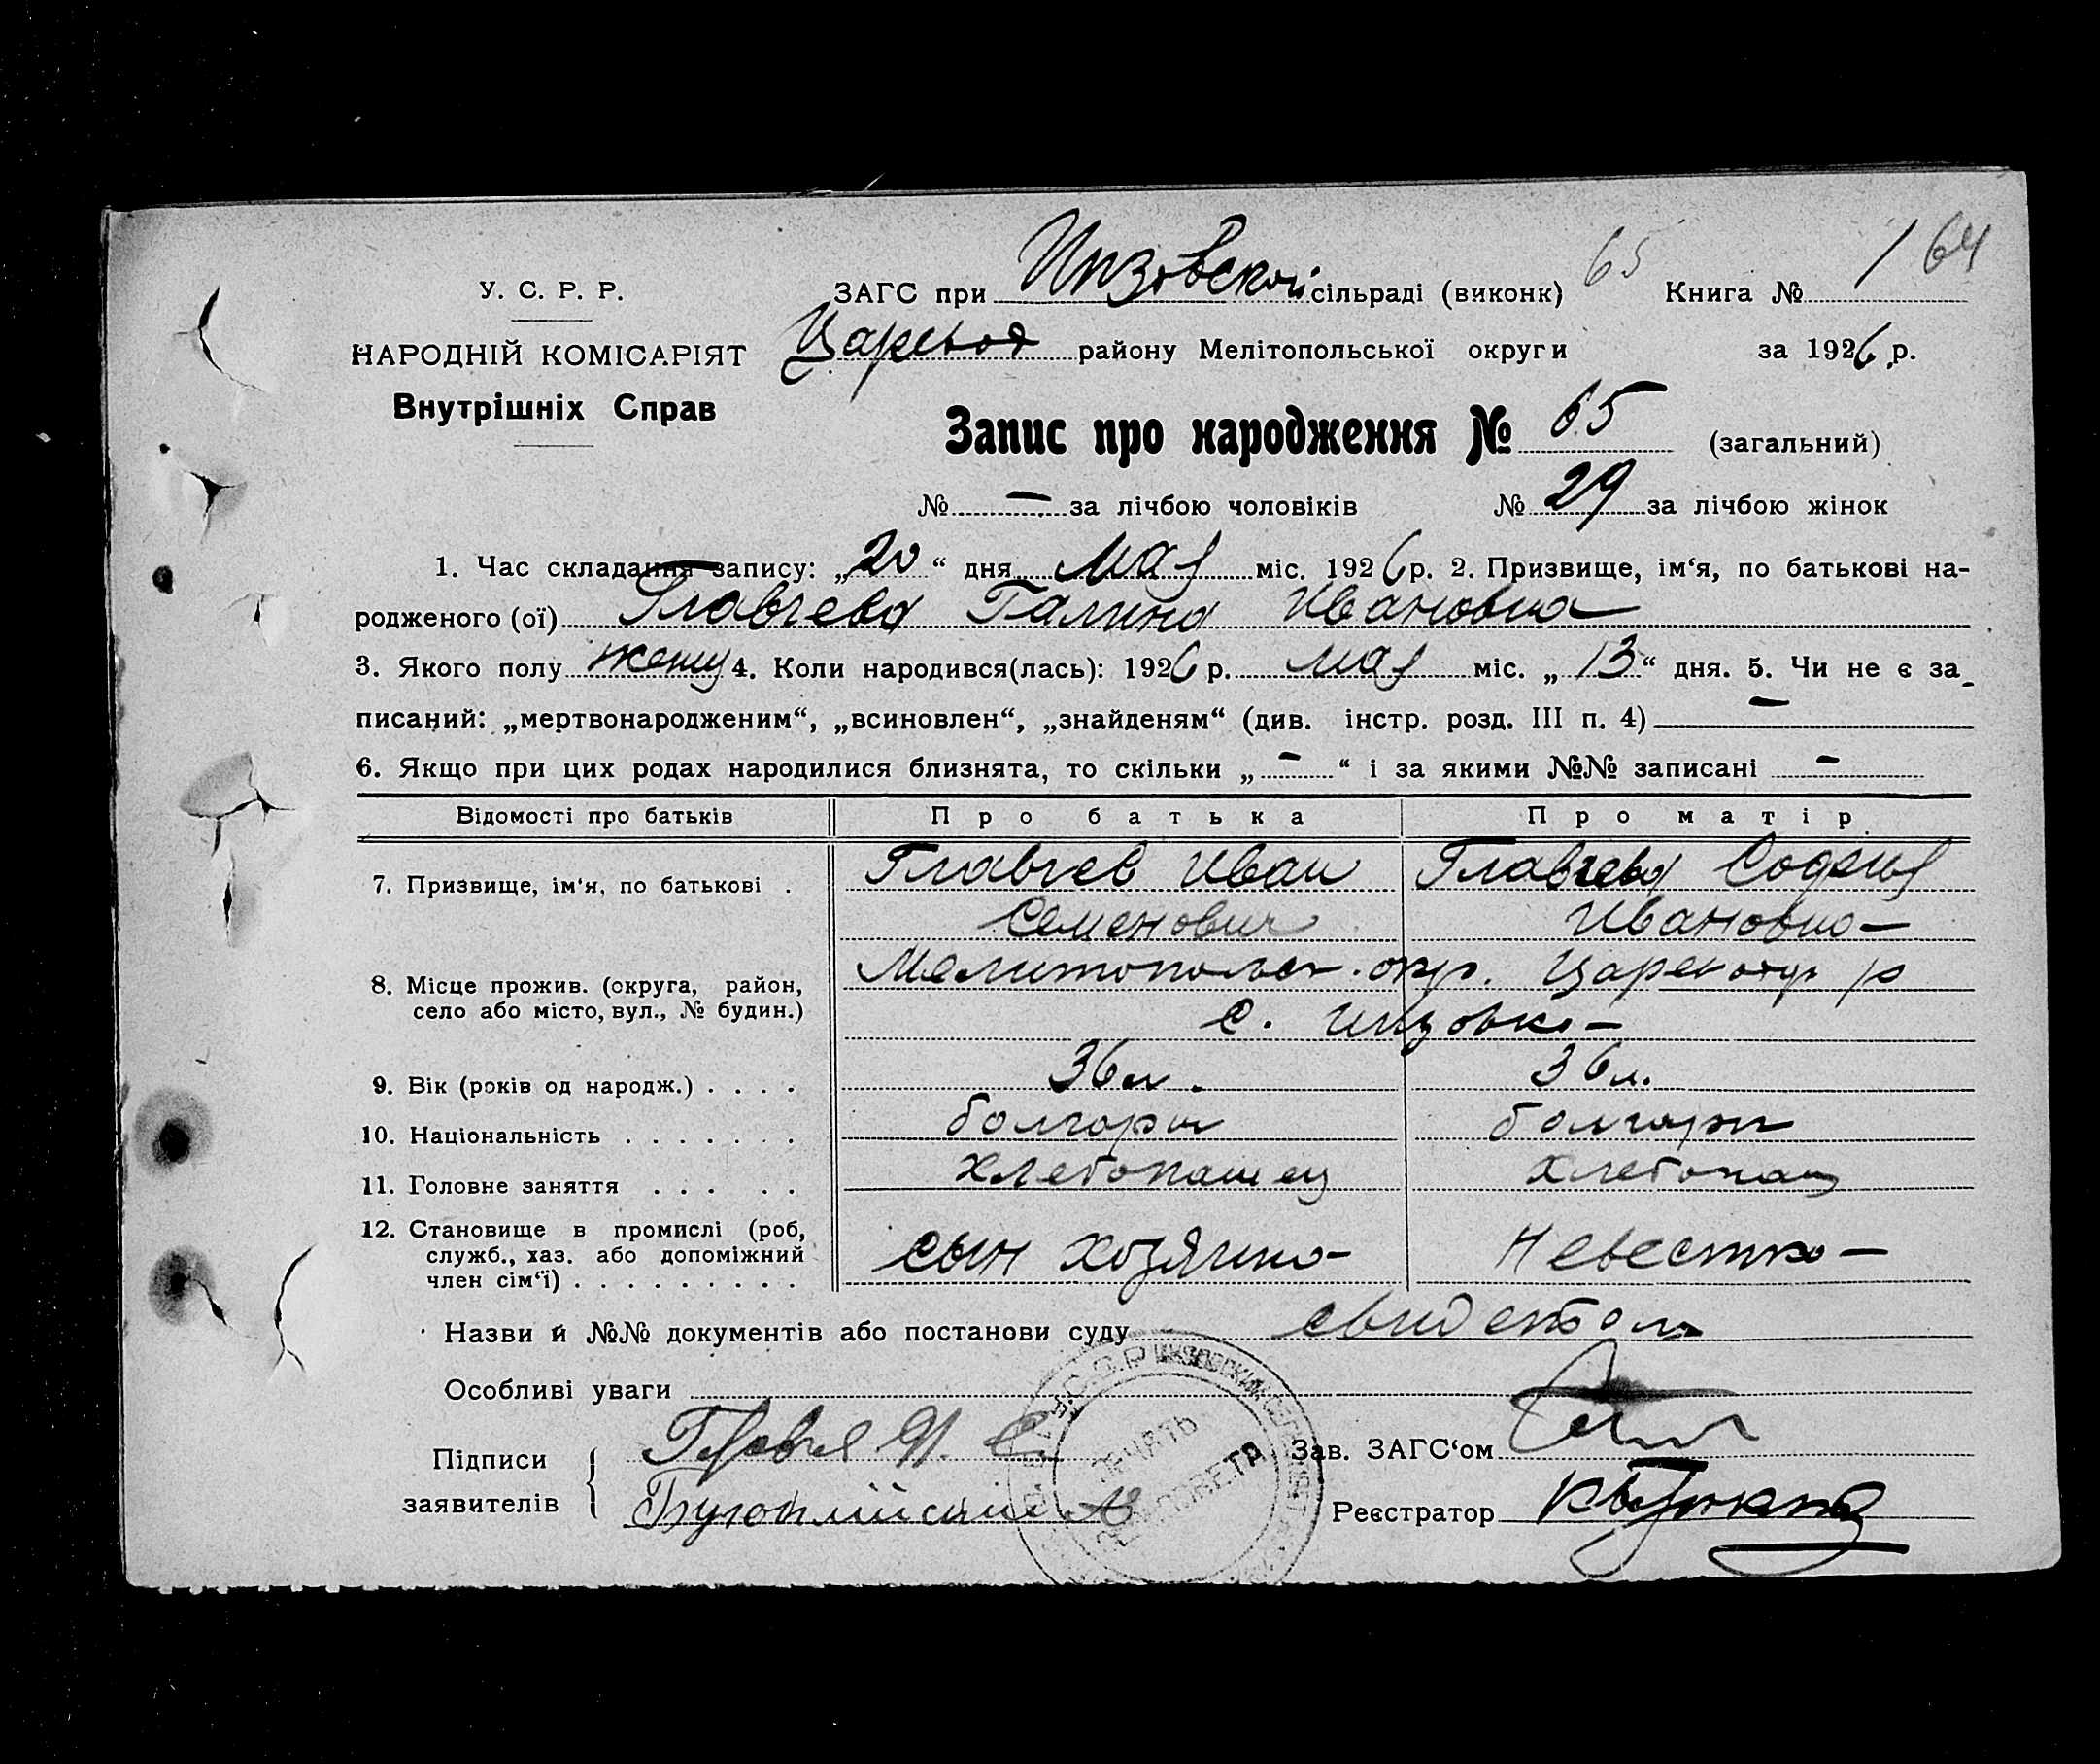 65
1 64
У. С. Р. Р.
НАРОДНІЙ КОМІСАРІЯТ
Внутрішніх Справ
ЗАГС при Инзовской сільраді (виконк) Книга №
району Мелітопольської округи за 1926 р.
Запис про народження № 65 (загальний)
№ – за лічбою чоловіків № 29 за лічбою жінок
1. Час складання запису: „20“ дня мая міс. 1926 р. 2. Призвище, ім‘я, по батькові на-
родженого (ої) Главчева Галина Ивановна
3. Якого полу 4. Коли народився(лась): 1926 р. мая міс. „13“ дня. 5. Чи не є за-
писаний: „мертвонародженим“, „всиновлен“, „знайденям“ (див. інстр. розд. III п. 4) –
6. Якщо при цих родах народилися близнята, то скільки „–“ і за якими №№ записані –
Відомості про батьків Про батька Про матір
7. Призвище, ім‘я, по батькові . Главчев Иван Главчева София
Семенович Ивановна
8. Місце прожив. (округа, район, Мелитопольск. окр.
село або місто, вул., № будин.) с. Инзовка
9. Вік (років од народж.) . . . . 36 л. 36 л.
10. Національність . . . . . . . болгары болгары
11. Головне заняття . . . . . хлебопашец хлебопащ
12. Становище в промислі (роб,
служб., хаз. або допоміжний сын хозяина невестка
член сім‘ї) . . . . . . . . .
Назви й №№ документів або постанови суду
Особливі уваги
Підписи заявителів
Зав. ЗАГС‘ом
Реєстратор
ПЕЧАТЬ
СЕЛЬСОВЕТА